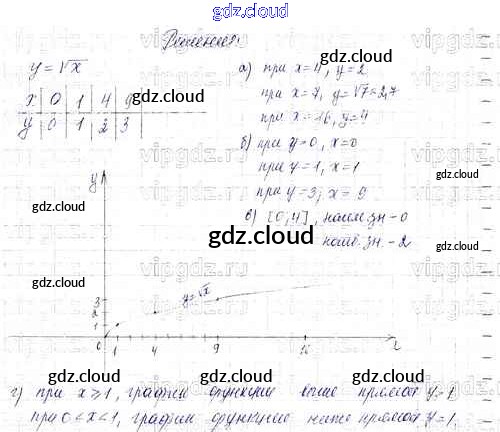 gdz.cloud
Решение.
y = √x
x | 0 | 1 | 4 | 9
y | 0 | 1 | 2 | 3
а) при x=4, y=2
при x=7, y=√7≈2,7
при x=16, y=4
б) при y=0, x=0
при y=1, x=1
при y=3; x=9
в) [0,4], наим. зн - 0
наиб. зн - 2
gdz.cloud
gdz.cloud
gdz.cloud
gdz.cloud
gdz.cloud
y
3
2
1
y=√x
0 1 4 9 16 x
gdz.cloud
gdz.cloud
gdz.cloud
г) при x≥1, график функции выше прямой y=1
при 0<x<1, график функции ниже прямой y=1.